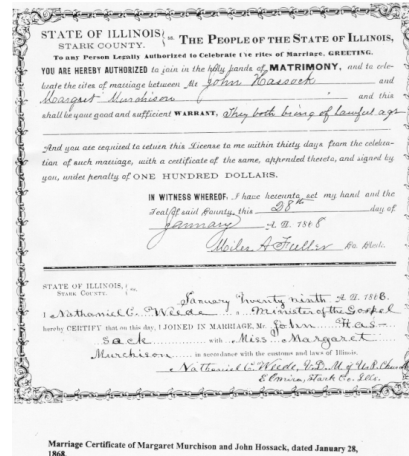 STATE OF ILLINOIS, } ss. THE PEOPLE OF THE STATE OF ILLINOIS,
STARK COUNTY.
To any Person Legally Authorized to Celebrate the rites of Marriage, GREETING.
YOU ARE HEREBY AUTHORIZED to join in the holy bands of MATRIMONY, and to cele-
brate the rites of marriage between Mr John Hassock and
Margret Murchison " and this
shall be your good and sufficient WARRANT, They both being of lawful age
And you are required to return this License to me within thirty days from the celebra-
tion of such marriage, with a certificate of the same, appended thereto, and signed by
you, under penalty of ONE HUNDRED DOLLARS.
IN WITNESS WHEREOF, I have hereunto set my hand and the
Seal of said County, this 28th day of
January A. D. 1868
Miles A Fuller Co. Clerk.
STATE OF ILLINOIS, } ss.
STARK COUNTY. January twenty ninth A. D. 1868.
I Nathaniel C. Weede a Minister of the Gospel
hereby CERTIFY that on this day, I JOINED IN MARRIAGE, Mr. John Has-
sack with Miss Margaret
Murchison in accordance with the customs and laws of Illinois.
Nathaniel C Weede, V. D. M of U. P. Church
Elmira, Stark Co. Ills.
Marriage Certificate of Margaret Murchison and John Hossack, dated January 28,
1868.